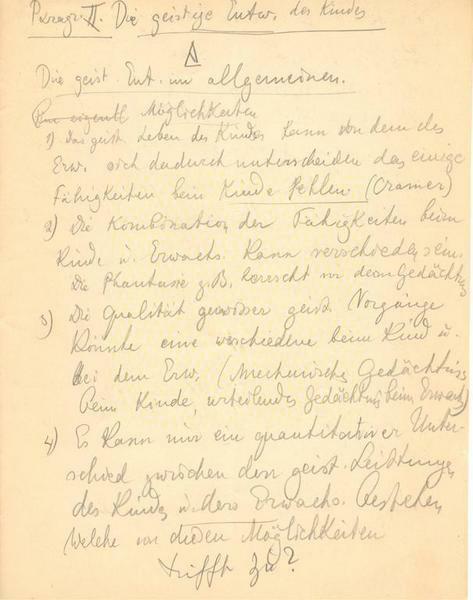 Paragr. II. Die geistige Entw. des Kindes
A
Die geist. Ent. im allgemeinen.
Möglichkeiten
1) Das geist. Leben des Kindes kann von dem des
Erw. sich dadurch unterscheiden das einige
Fähigkeiten beim Kinde fehlen (Cramer)
2) Die Kombination der Fähigkeiten beim
Kinde u. Erwachs. kann verschieden sein.
Die Phantasie z.B. herrscht vor dem Gedächtn
3) Die Qualität gewisser geist. Vorgänge
könnte eine verschiedene beim Kind u.
bei dem Erw. (Mechanisches Gedächtniss
beim Kinde, urteilendes Gedächtnis beim Erwachs)
4) Es kann nur ein quantitativer Unter-
schied zwischen den geist. Leistungen
des Kindes u. des Erwachs. bestehen,
Welche von diesen Möglichkeiten
trifft zu?